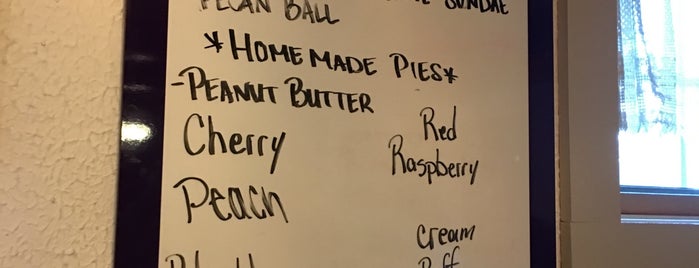 PECAN BALL
SUNDAE
*HOMEMADE PIES*
-PEANUT BUTTER
Cherry
Red
Raspberry
Peach
Cream
Puff